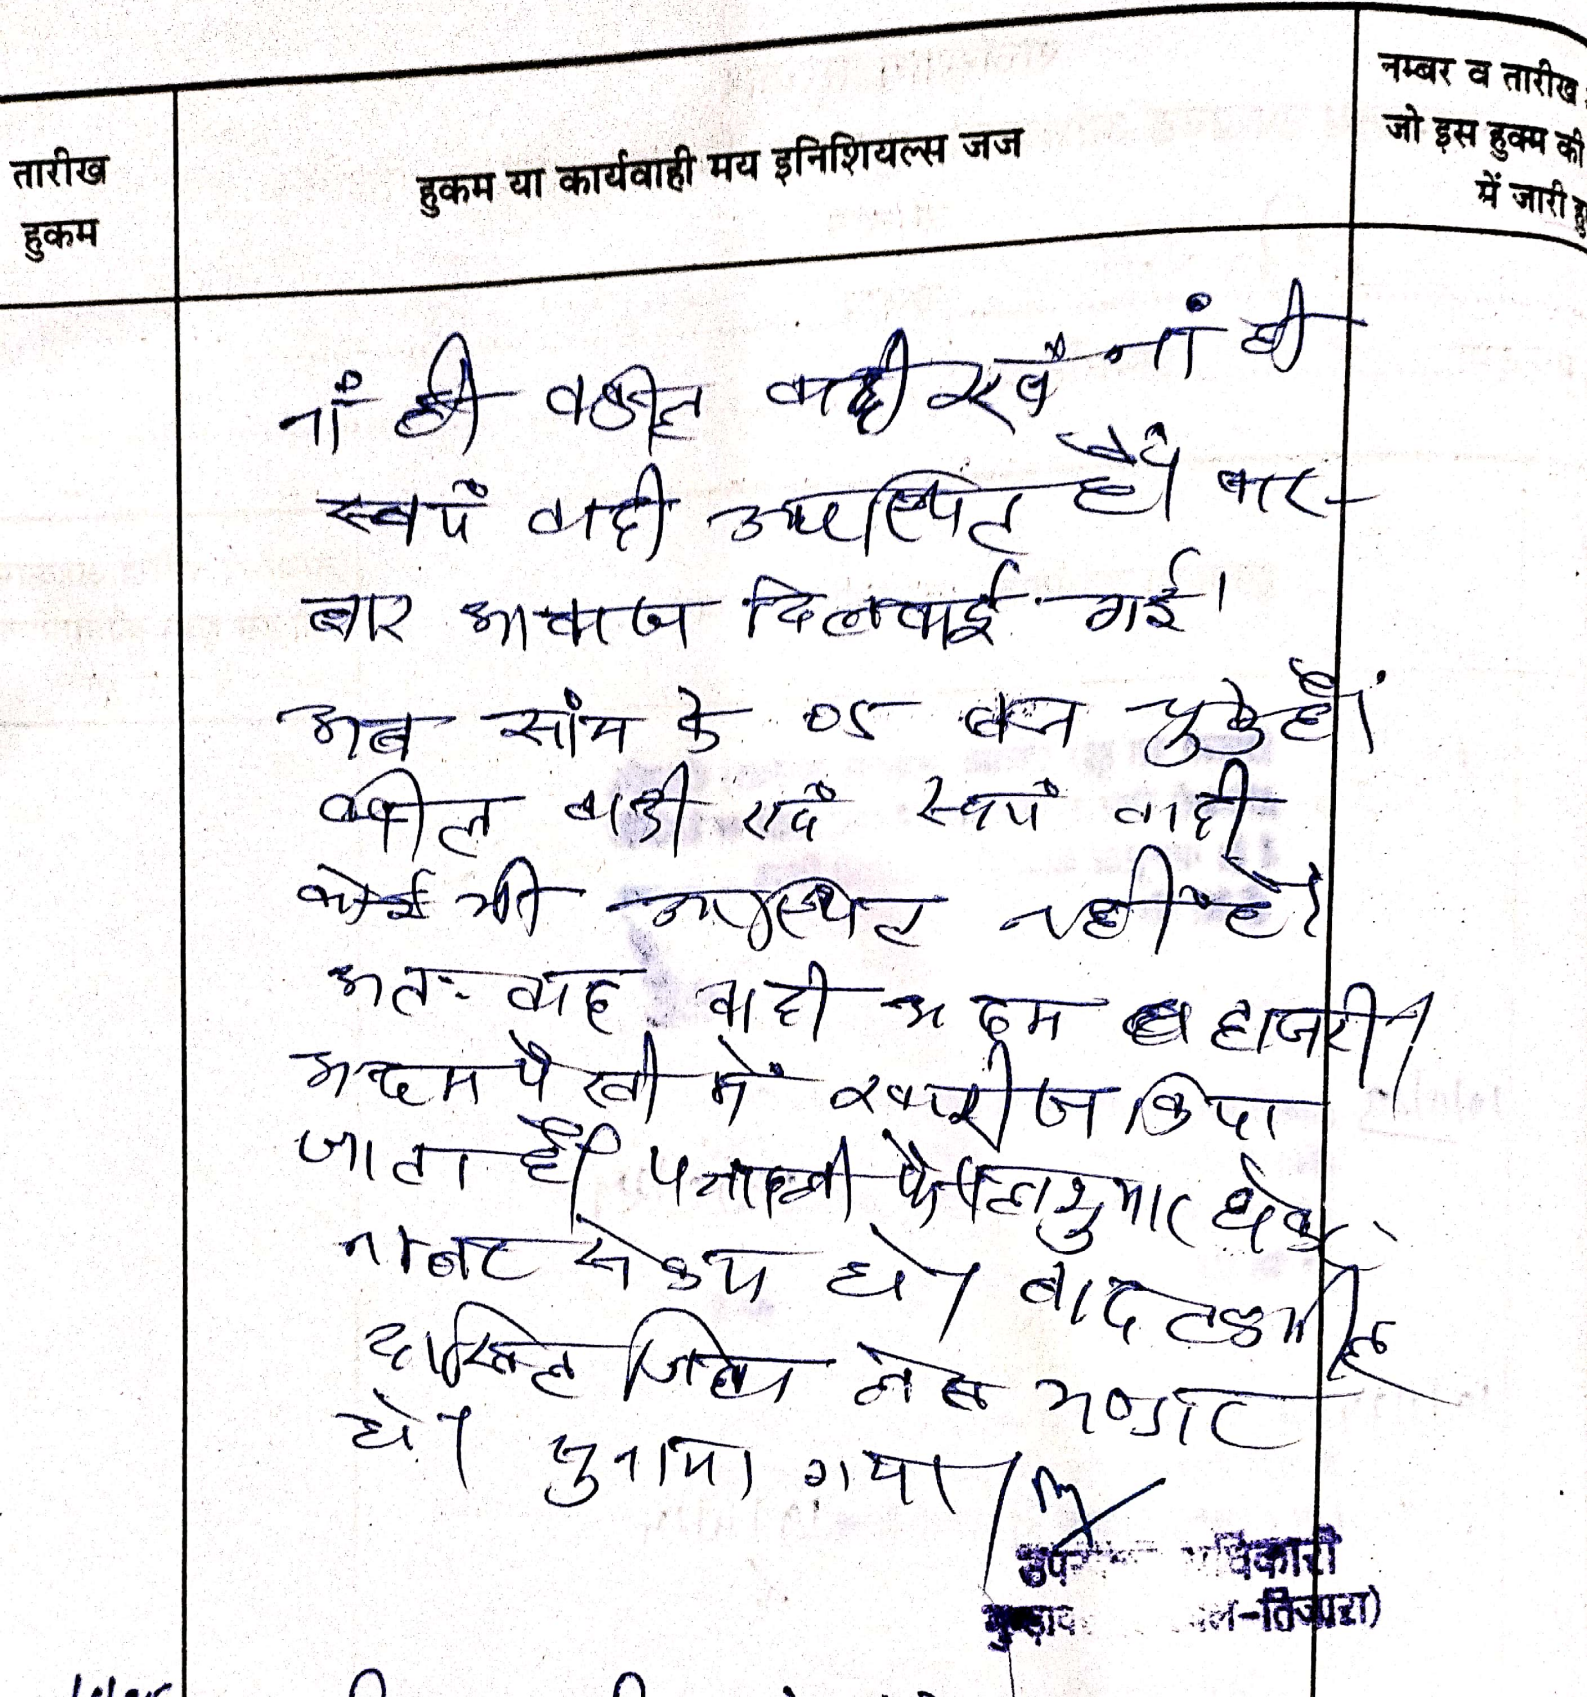 नम्बर व तारीख
तारीख
हुकम
हुकम या कार्यवाही मय इनिशियल्स जज
जो इस हुक्म की
में जारी
नां ही वकील वादी एवं नां ही
स्वयं वादी उपस्थित है। बार-
बार आवाज दिलवाई गई।
अब सांय के 05 बज चुके हैं।
वकील वादी एवं स्वयं वादी
कोई भी उपस्थित नहीं है।
अतः वाद वादी अदम हाजरी/
अदम पैरवी में खारीज किया
जाता है। पत्रावली फैसलशुमार होकर
नम्बर से कम हो। बाद तकमील
दाखिल जिला लेख भण्डार
हो। सुनाया गया।
उप अधिकारी
-तिजारा)